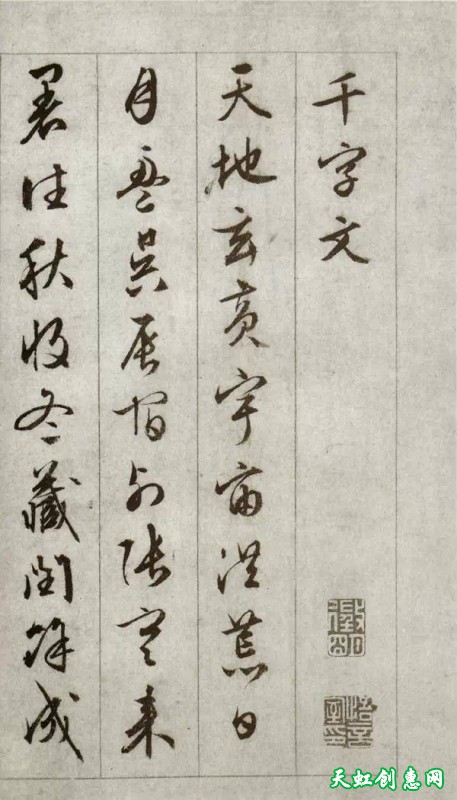 千字文
天地玄黄宇宙洪荒日
月盈昃辰宿列张寒来
暑往秋收冬藏闰馀成
徵明
悟言室印
天虹创惠网